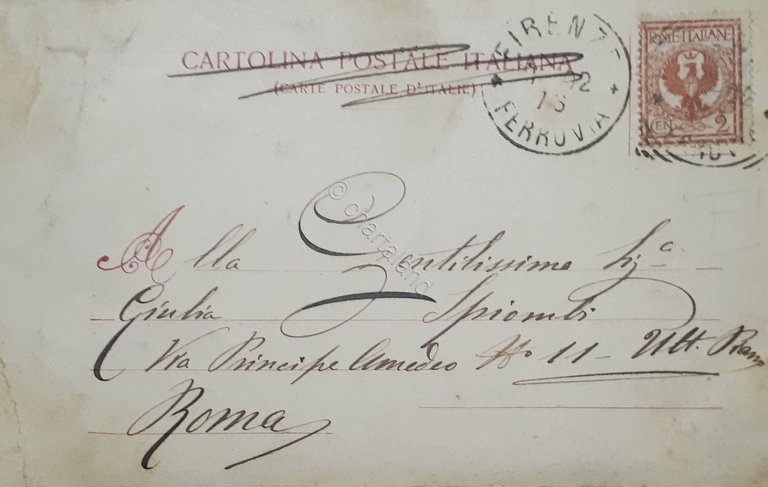 CARTOLINA POSTALE ITALIANA
(CARTE POSTALE D'ITALIE)
FIRENZE
FERROVIA
POSTE ITALIANE
CEN. 2
© chartaland
Alla Gentilissima Sig.a
Giulia Spiombi
Via Principe Amedeo No 11 - Ult. Piano
Roma